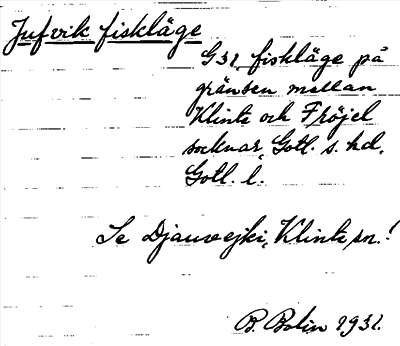 Jufvik fiskläge
Gsl. fiskläge på
gränsen mellan
Klinte och Fröjel
socknar, Gotl. s. hd,
Gotl. l.
Se Djauvejki, Klinte sn.!
B. Bolin 1931.